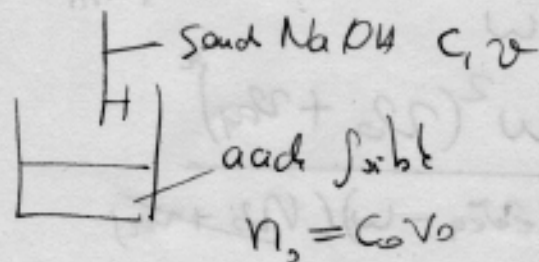 soude NaOH C, v
acide faible
n₀ = C₀V₀